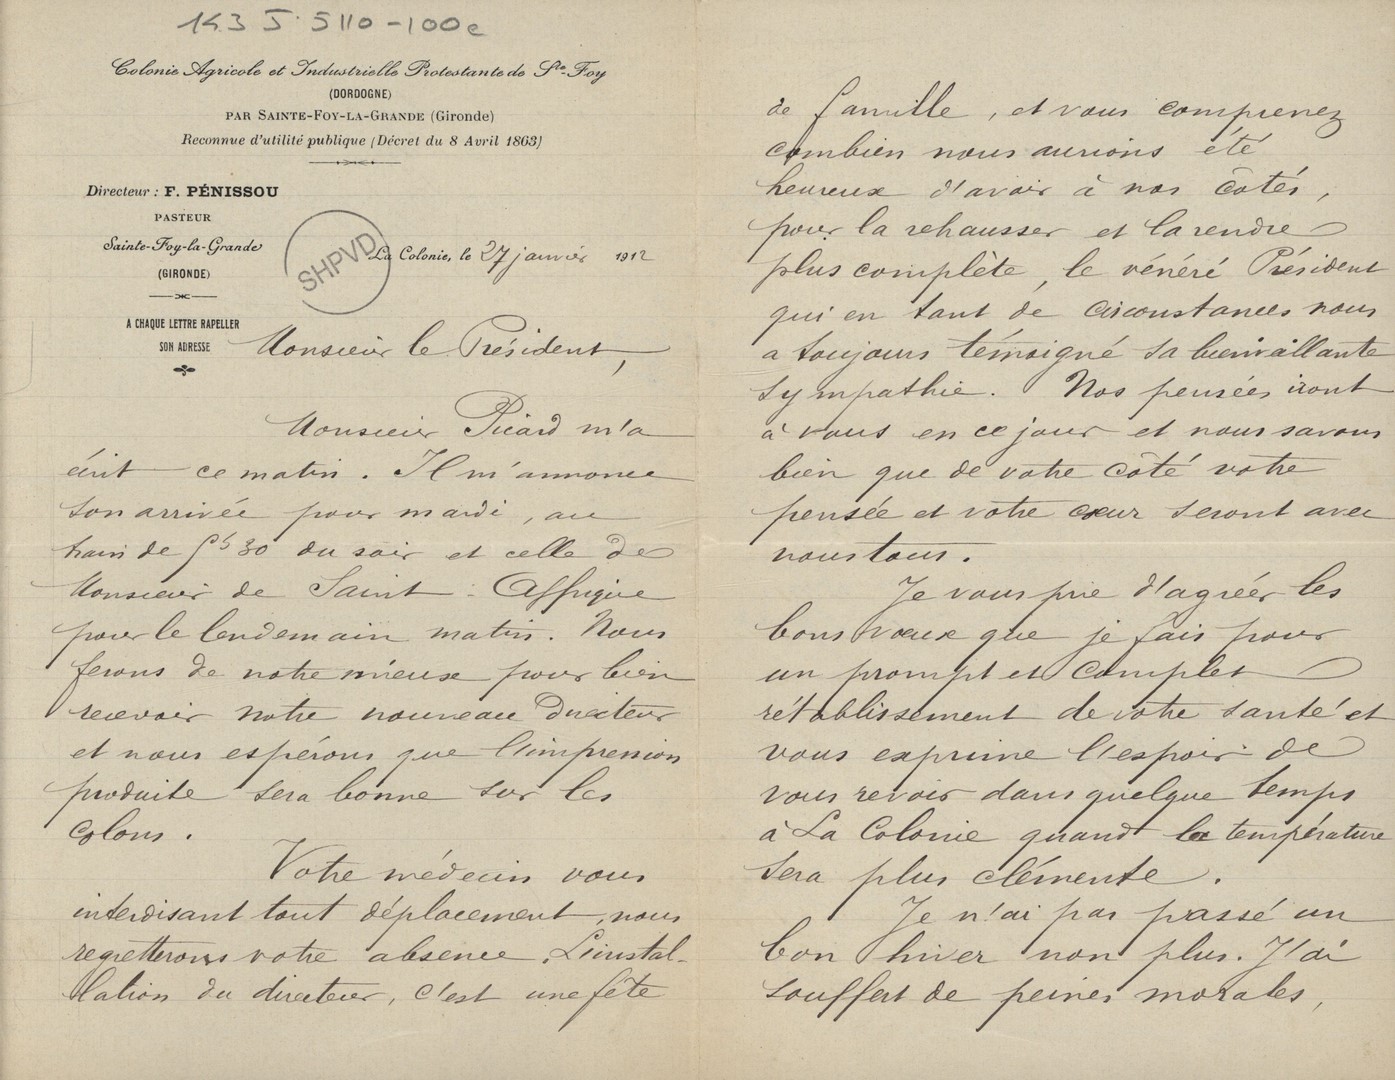 143 J 5110-100c
Colonie Agricole et Industrielle Protestante de Ste-Foy
(DORDOGNE)
PAR SAINTE-FOY-LA-GRANDE (Gironde)
Reconnue d'utilité publique (Décret du 8 Avril 1863)
Directeur : F. PÉNISSOU
PASTEUR
Sainte-Foy-la-Grande
(GIRONDE)
SHPVD
La Colonie, le 27 janvier 1912
A CHAQUE LETTRE RAPELLER
SON ADRESSE
Monsieur le Président,
Monsieur Picard m'a
écrit ce matin. Il m'annonce
son arrivée pour mardi, au
train de 5h30 du soir et celle de
Monsieur de Saint-Affrique
pour le lendemain matin. Nous
ferons de notre mieux pour bien
recevoir notre nouveau Directeur
et nous espérons que l'impression
produite sera bonne sur les
colons.
Votre médecin vous
interdisant tout déplacement, nous
regretterons votre absence. L'instal-
lation du directeur, c'est une fête
de famille, et vous comprenez
combien nous aurions été
heureux d'avoir à nos côtés,
pour la rehausser et la rendre
plus complète, le vénéré Président
qui en tant de circonstances nous
a toujours témoigné sa bienvaillante
sympathie. Nos pensées iront
à vous en ce jour et nous savons
bien que de votre côté votre
pensée et votre cœur seront avec
nous tous.
Je vous prie d'agréer les
bons vœux que je fais pour
un prompt et complet
rétablissement de votre santé et
vous exprime l'espoir de
vous revoir dans quelque temps
à La Colonie quand la température
sera plus clémente.
Je n'ai pas passé un
bon hiver non plus. J'ai
souffert de peines morales,